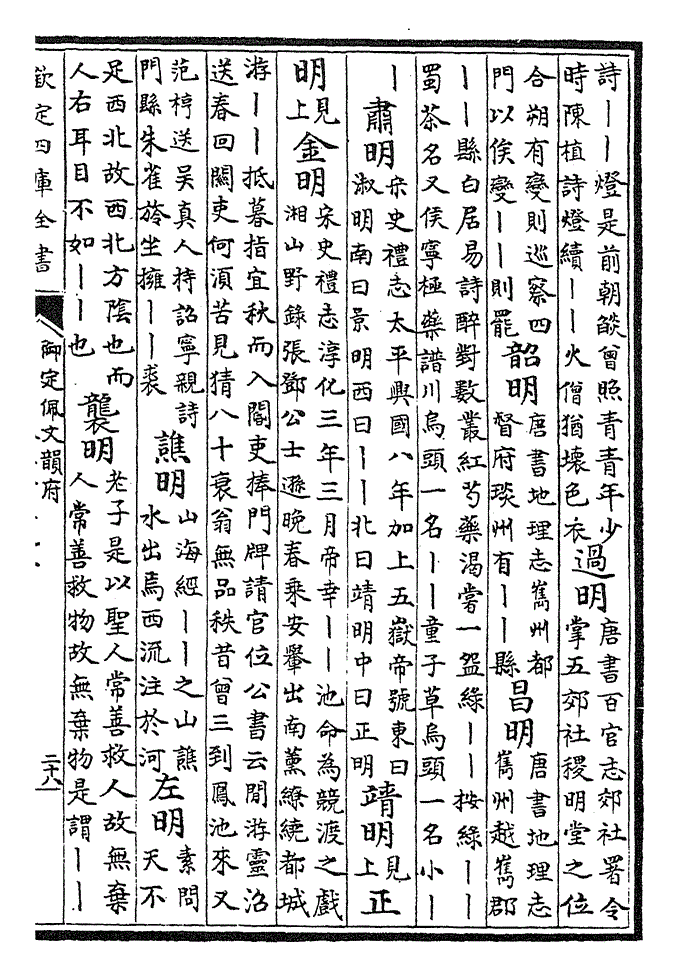 詩——燈是前朝燄曾照青青年少
時陳植詩燈續——火僧猶壞色衣
過明
唐書百官志郊社署令
掌五郊社稷明堂之位
合朔有變則巡察四
門以俟變——則罷
韶明
唐書地理志雟州都
督府琰州有——縣
昌明
唐書地理志
雟州越雟郡
——縣白居易詩醉對數叢紅芍藥渴嘗一盌綠——按綠——
蜀茶名又侯寧極藥譜川烏頭一名——童子草烏頭一名小—
—
肅明
宋史禮志太平興國八年加上五嶽帝號東曰
淑明南曰景明西曰——北曰靖明中曰正明
靖明
見
上
正
明
見
上
金明
宋史禮志淳化三年三月帝幸——池命為競渡之戲
湘山野錄張鄧公士遜晚春乘安轝出南薰繚繞都城
游——抵暮指宜秋而入閽吏捧門牌請官位公書云閒游靈沼
送春回關吏何須苦見猜八十衰翁無品秩昔曾三到鳳池來又
范梈送吳真人持詔寧親詩
門縣朱雀旂坐擁——裘
譙明
山海經——之山譙
水出焉西流注於河
左明
素問
天不
足西北故西北方陰也而
人右耳目不如——也
襲明
老子是以聖人常善救人故無棄
人常善救物故無棄物是謂——
欽定四庫全書
御定佩文韻府
二十八